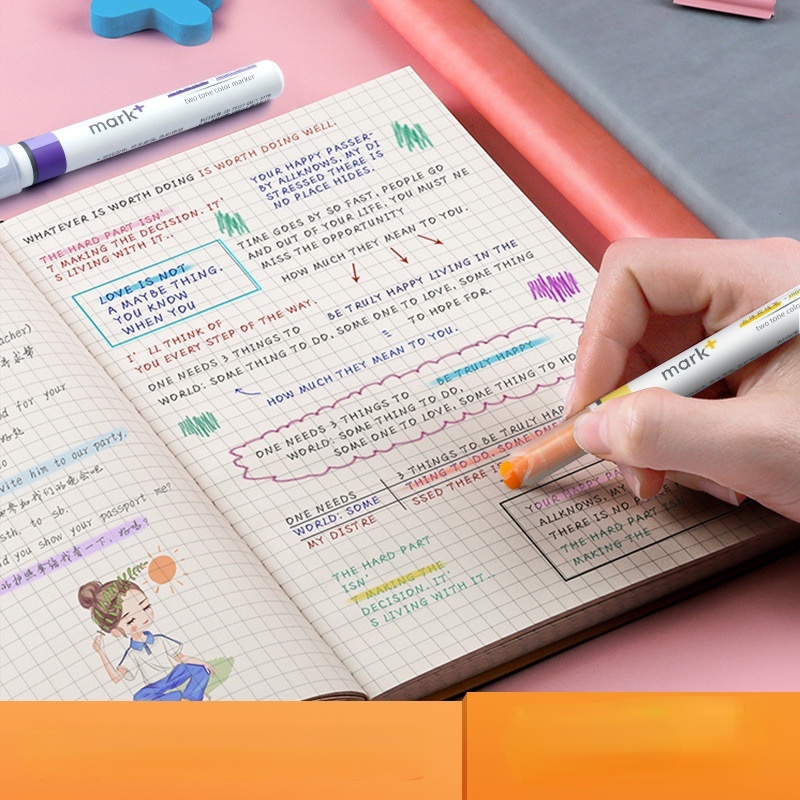 mark+
two tone color marker
WHATEVER IS WORTH DOING IS WORTH DOING WELL.
THE HARD PART ISN'
T MAKING THE DECISION. IT'
S LIVING WITH IT..
YOUR HAPPY PASSER-
BY ALLKNOWS, MY DI
STRESSED THERE IS
NO PLACE HIDES.
TIME GOES BY SO FAST, PEOPLE GO
AND OUT OF YOUR LIFE. YOU MUST NE
MISS THE OPPORTUNITY
HOW MUCH THEY MEAN TO YOU.
LOVE IS NOT
A MAYBE THING.
YOU KNOW
WHEN YOU
I' LL THINK OF
YOU EVERY STEP OF THE WAY.
BE TRULY HAPPY LIVING IN THE
ONE NEEDS 3 THINGS TO
WORLD: SOME THING TO DO, SOME ONE TO LOVE, SOME THING
TO HOPE FOR.
HOW MUCH THEY MEAN TO YOU.
BE TRULY HAPPY
ONE NEEDS 3 THINGS TO
WORLD: SOME THING TO DO,
SOME ONE TO LOVE, SOME THING TO HO
3 THINGS TO BE TRULY HAPP
THING TO DO, SOME ONE
SSED THERE IS
ONE NEEDS
WORLD: SOME
MY DISTRE
YOUR HAPPY PASSER
ALLKNOWS, MY
THERE IS NO PLACE
THE HARD PART IS
MAKING THE
THE HARD PART
ISN'
T MAKING THE
DECISION. IT'
S LIVING WITH IT...
acher)
d for your
vite him to our party.
sth. to sb.
d you show your passport me?
mark+
two tone colo